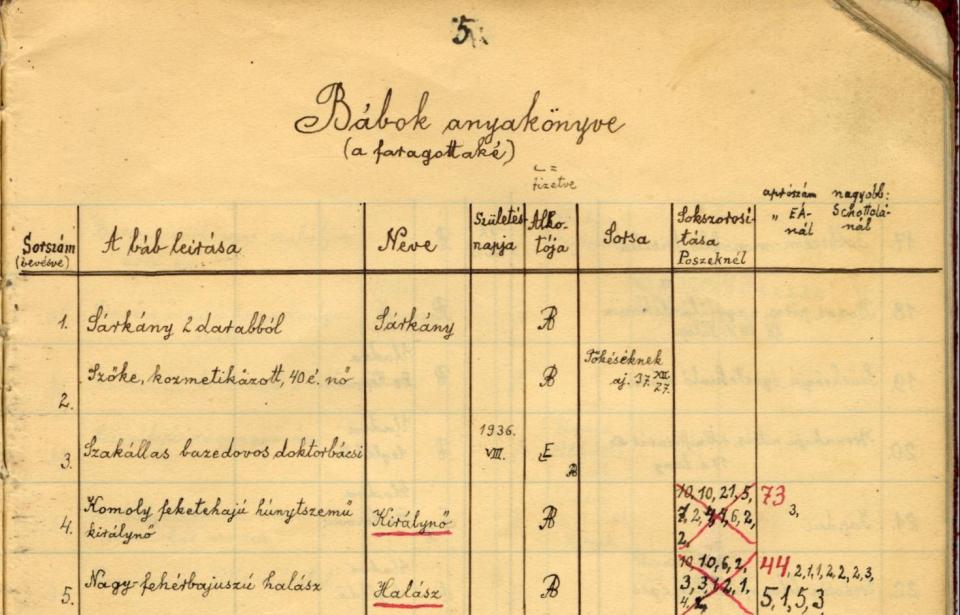 5.
Bábok anyakönyve
(a faragottaké)
fizetve
Sorszám
(bevésve)
A báb leirása
Neve
Születés-
napja
Alko-
tója
Sorsa
Sokszorosi-
tása
Poszeknél
aprószám
„ EÁ-
nál
nagyobb:
Schottolá-
nál
1. Sárkány 2 darabból Sárkány
2. Szőke, kozmetikázott, 40 é. nő Tőkéséknek
aj. 37. XII
27.
3. Szakállas bazedovos doktorbácsi 1936.
VIII. E
4. Komoly feketehajú húnytszemű
királynő Királynő 10, 10, 21, 5, 73
6, 2, 3,
2.
5. Nagy-fehérbajuszú halász Halász 10, 10, 6, 2, 44, 2, 1, 1, 2, 2, 2, 3,
3, 3, 2, 1, 5, 1, 5, 3